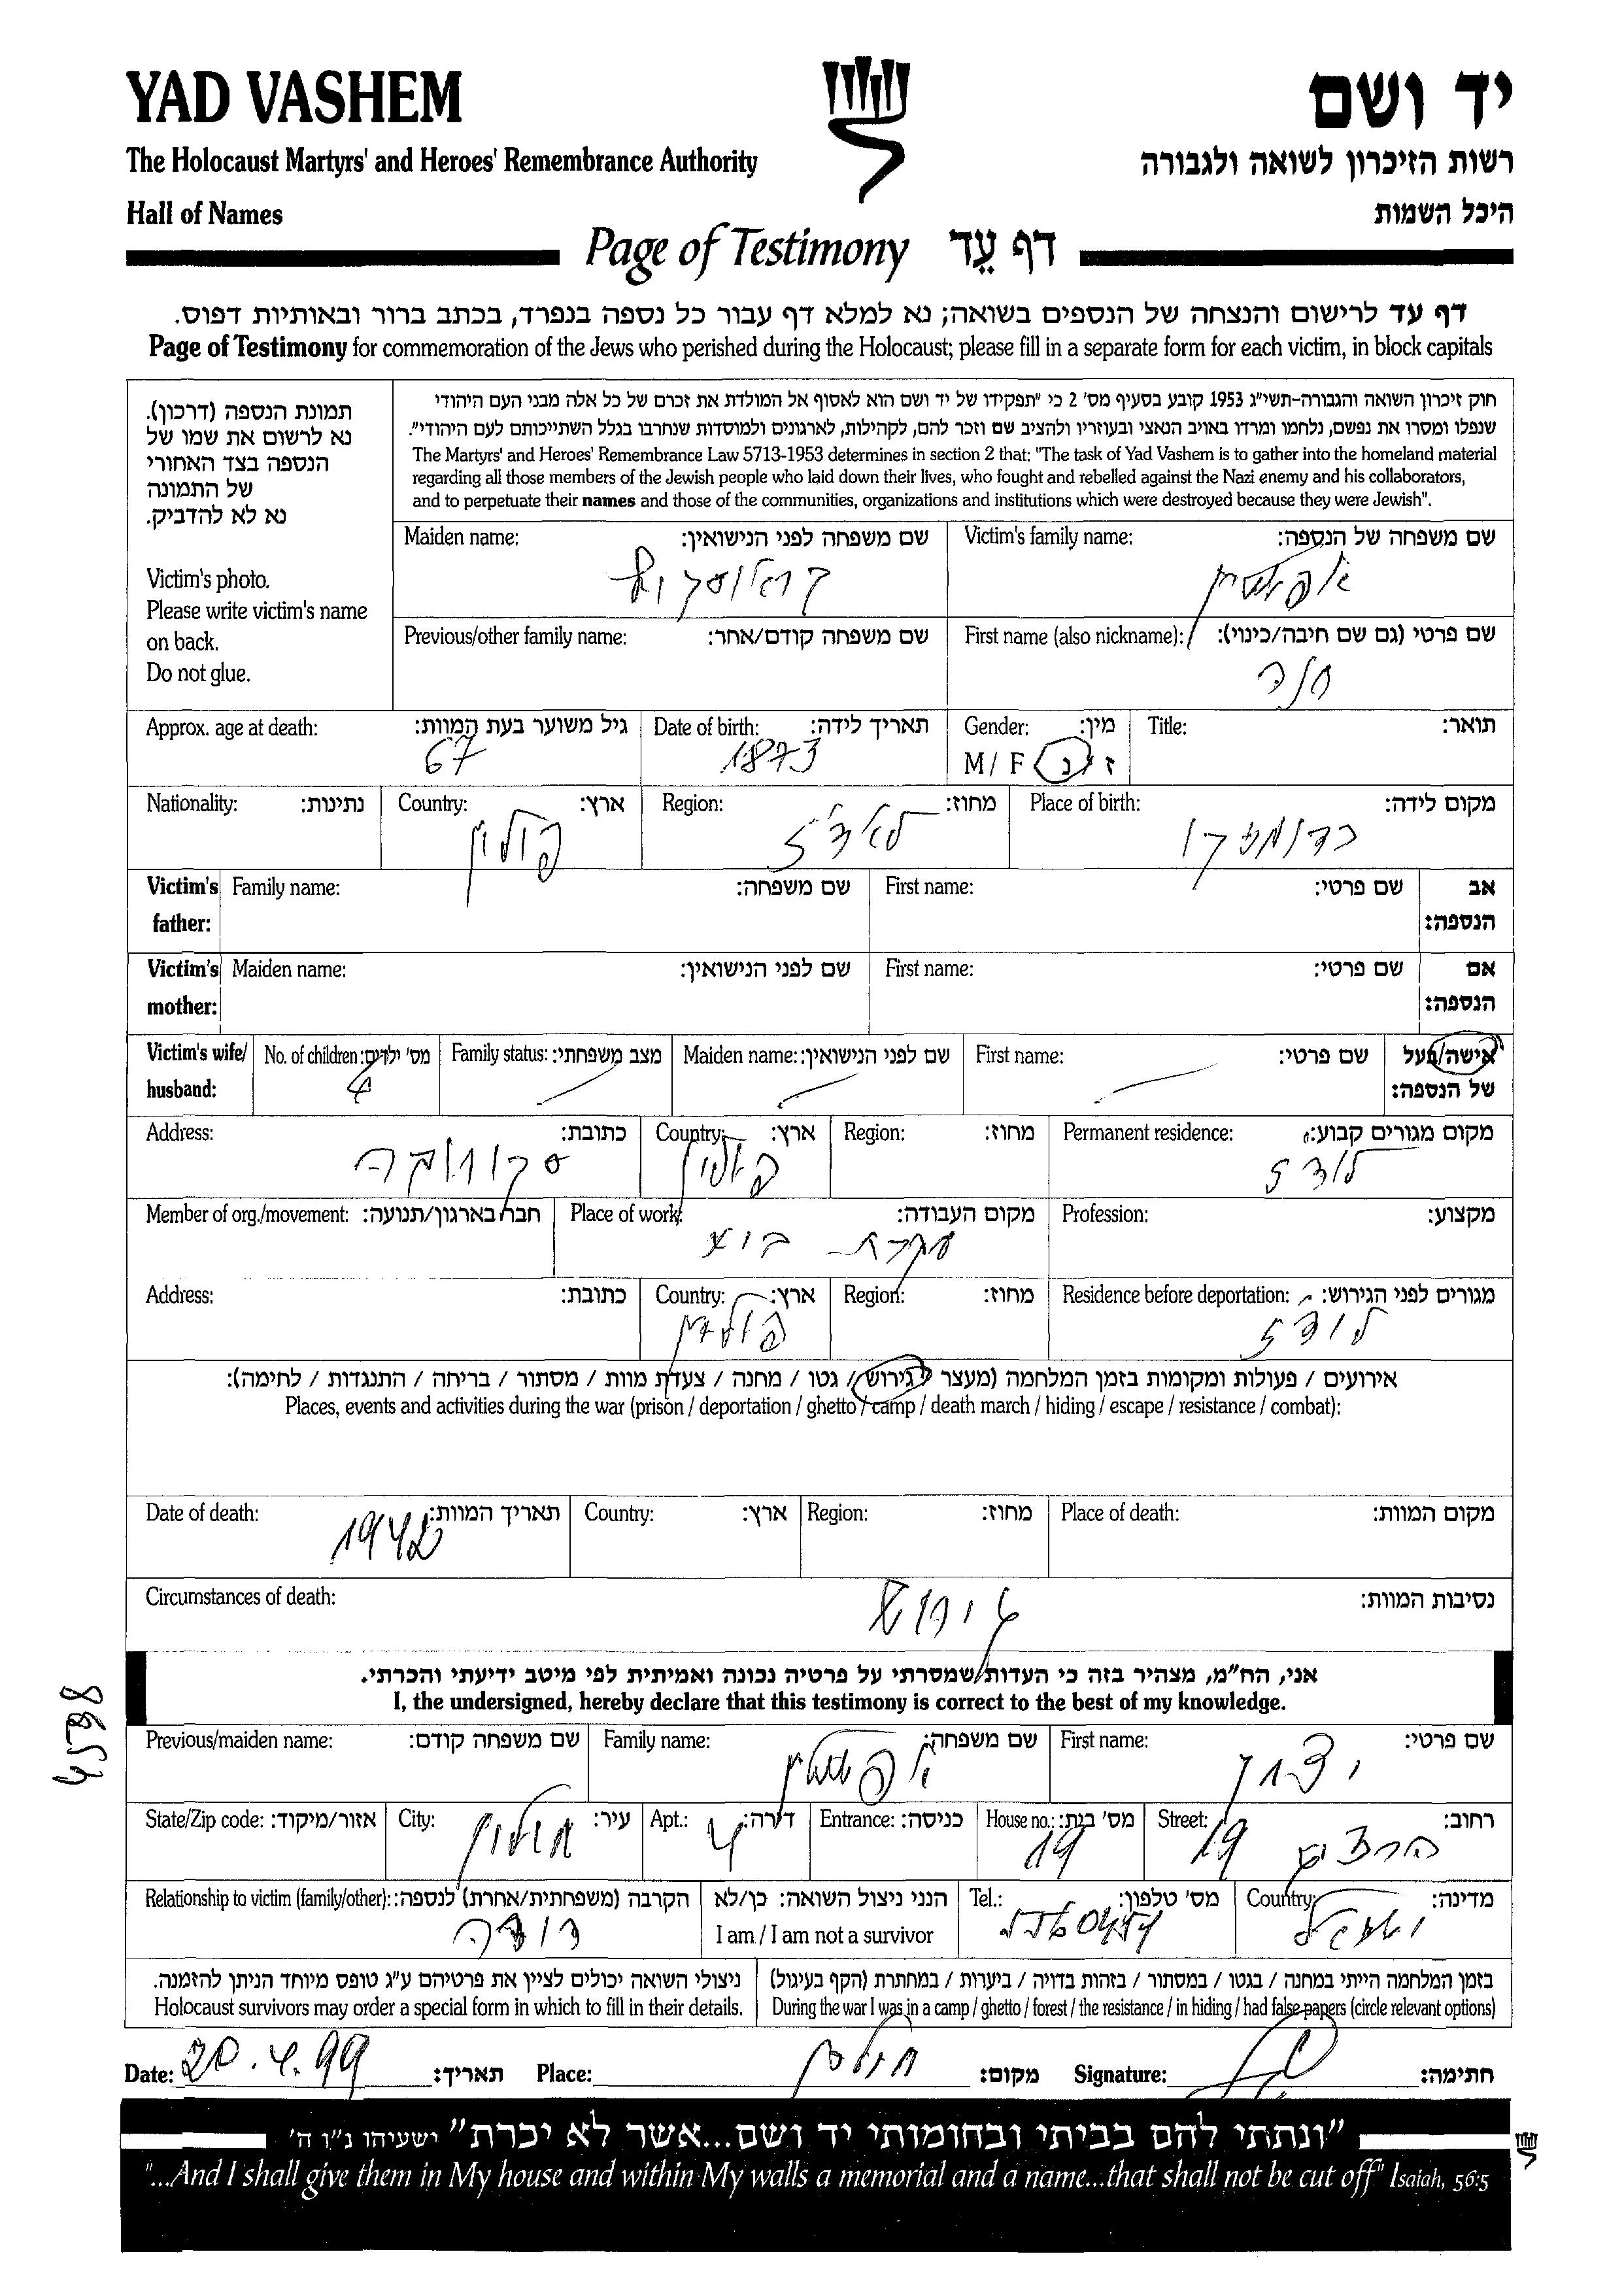 YAD VASHEM
יד ושם
The Holocaust Martyrs' and Heroes' Remembrance Authority
רשות הזיכרון לשואה ולגבורה
Hall of Names
היכל השמות
Page of Testimony דף עֵד
דף עד לרישום והנצחה של הנספים בשואה; נא למלא דף עבור כל נספה בנפרד, בכתב ברור ובאותיות דפוס.
Page of Testimony for commemoration of the Jews who perished during the Holocaust; please fill in a separate form for each victim, in block capitals
תמונת הנספה (דרכון).
נא לרשום את שמו של
הנספה בצד האחורי
של התמונה
נא לא להדביק.
Victim's photo.
Please write victim's name
on back.
Do not glue.
חוק זיכרון השואה והגבורה-תשי"ג 1953 קובע בסעיף מס' 2 כי "תפקידו של יד ושם הוא לאסוף אל המולדת את זכרם של כל אלה מבני העם היהודי
שנפלו ומסרו את נפשם, נלחמו ומרדו באויב הנאצי ובעוזריו ולהציב שם וזכר להם, לקהילות, לארגונים ולמוסדות שנחרבו בגלל השתייכותם לעם היהודי".
The Martyrs' and Heroes' Remembrance Law 5713-1953 determines in section 2 that: "The task of Yad Vashem is to gather into the homeland material
regarding all those members of the Jewish people who laid down their lives, who fought and rebelled against the Nazi enemy and his collaborators,
and to perpetuate their names and those of the communities, organizations and institutions which were destroyed because they were Jewish".
Victim's family name: שם משפחה של הנספה:
Maiden name: שם משפחה לפני הנישואין:
First name (also nickname): שם פרטי (גם שם חיבה/כינוי):
חנה
Previous/other family name: שם משפחה קודם/אחר:
Title: תואר:
Gender: מין:
M / F ז / נ
Date of birth: תאריך לידה:
1873
Approx. age at death: גיל משוער בעת המוות:
67
Place of birth: מקום לידה:
Region: מחוז:
לאדז'
Country: ארץ:
פולין
Nationality: נתינות:
Victim's father: Family name: שם משפחה: First name: שם פרטי: אב הנספה:
Victim's mother: Maiden name: שם לפני הנישואין: First name: שם פרטי: אם הנספה:
Victim's wife/husband: No. of children: מס' ילדים: Family status: מצב משפחתי: Maiden name: שם לפני הנישואין: First name: שם פרטי: אישה/בעל של הנספה:
4
Permanent residence: מקום מגורים קבוע:
לודז'
Region: מחוז:
Country: ארץ:
פולין
Address: כתובת:
Profession: מקצוע:
Place of work: מקום העבודה:
עקרת- בית
Member of org./movement: חבר בארגון/תנועה:
Residence before deportation: מגורים לפני הגירוש:
לודז'
Region: מחוז:
Country: ארץ:
פולין
Address: כתובת:
אירועים / פעולות ומקומות בזמן המלחמה (מעצר / גירוש / גטו / מחנה / צעדת מוות / מסתור / בריחה / התנגדות / לחימה):
Places, events and activities during the war (prison / deportation / ghetto / camp / death march / hiding / escape / resistance / combat):
Place of death: מקום המוות:
Region: מחוז:
Country: ארץ:
Date of death: תאריך המוות:
1942
Circumstances of death: נסיבות המוות:
גירוש
אני, הח"מ, מצהיר בזה כי העדות שמסרתי על פרטיה נכונה ואמיתית לפי מיטב ידיעתי והכרתי.
I, the undersigned, hereby declare that this testimony is correct to the best of my knowledge.
4598
First name: שם פרטי:
יצחק
Family name: שם משפחה:
Previous/maiden name: שם משפחה קודם:
Street: רחוב:
19
House no.: מס' בית:
19
Entrance: כניסה:
Apt.: דירה:
4
City: עיר:
חולון
State/Zip code: אזור/מיקוד:
Country: מדינה:
ישראל
Tel.: מס' טלפון:
הנני ניצול השואה: כן/לא
I am / I am not a survivor
Relationship to victim (family/other): הקרבה (משפחתית/אחרת) לנספה:
דודה
בזמן המלחמה הייתי במחנה / בגטו / במסתור / בזהות בדויה / ביערות / במחתרת (הקף בעיגול)
During the war I was in a camp / ghetto / forest / the resistance / in hiding / had false papers (circle relevant options)
ניצולי השואה יכולים לציין את פרטיהם ע"ג טופס מיוחד הניתן להזמנה.
Holocaust survivors may order a special form in which to fill in their details.
Date: 20.4.99 תאריך: Place: חולון מקום: Signature: חתימה:
"ונתתי להם בביתי ובחומותי יד ושם...אשר לא יכרת" ישעיהו נ"ו ה'
"...And I shall give them in My house and within My walls a memorial and a name...that shall not be cut off" Isaiah, 56:5